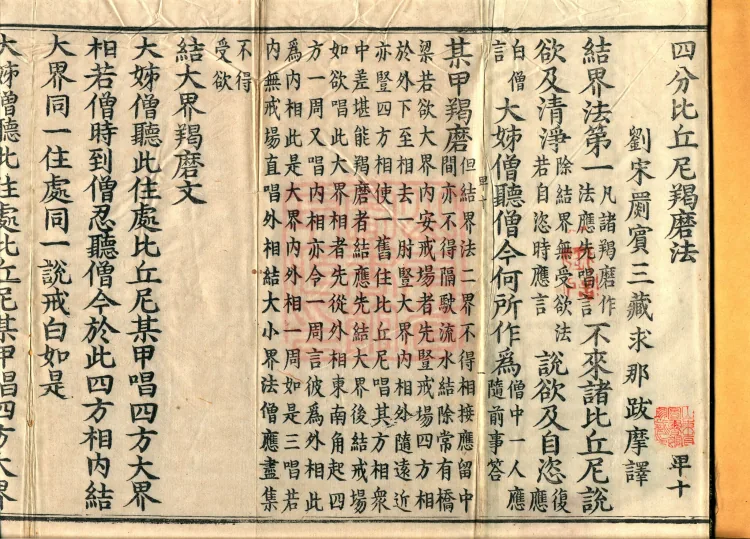 四分比丘尼羯磨法
劉宋罽賓三藏求那跋摩譯
結界法第一凡諸羯磨作法應先唱言不來諸比丘尼說
欲及清淨除結界無受欲法若自恣時應言說欲及自恣復應
白僧言大姊僧聽僧今何所作為僧中一人應隨前事答
某甲羯磨但結界法二界不得相接應留中間亦不得隔駛流水結除常有橋
梁若欲大界內安戒場者先豎戒場四方相
於外下至相去一肘豎大界內相外隨遠近
亦豎四方相使一舊住比丘尼唱其方相眾
中差堪能羯磨者結應先結大界後結戒場
如欲唱此大界相者先從外相東南角起四
方一周又唱內相亦令一周言彼為外相此
為內相此是大界內外相一周如是三唱若
內無戒場直唱外相結大小界法僧應盡集
不得
受欲
結大界羯磨文
大姊僧聽此住處比丘尼某甲唱四方大界
相若僧時到僧忍聽僧今於此四方相內結
大界同一住處同一說戒白如是
大姊僧聽此住處比丘尼某甲唱四方大界